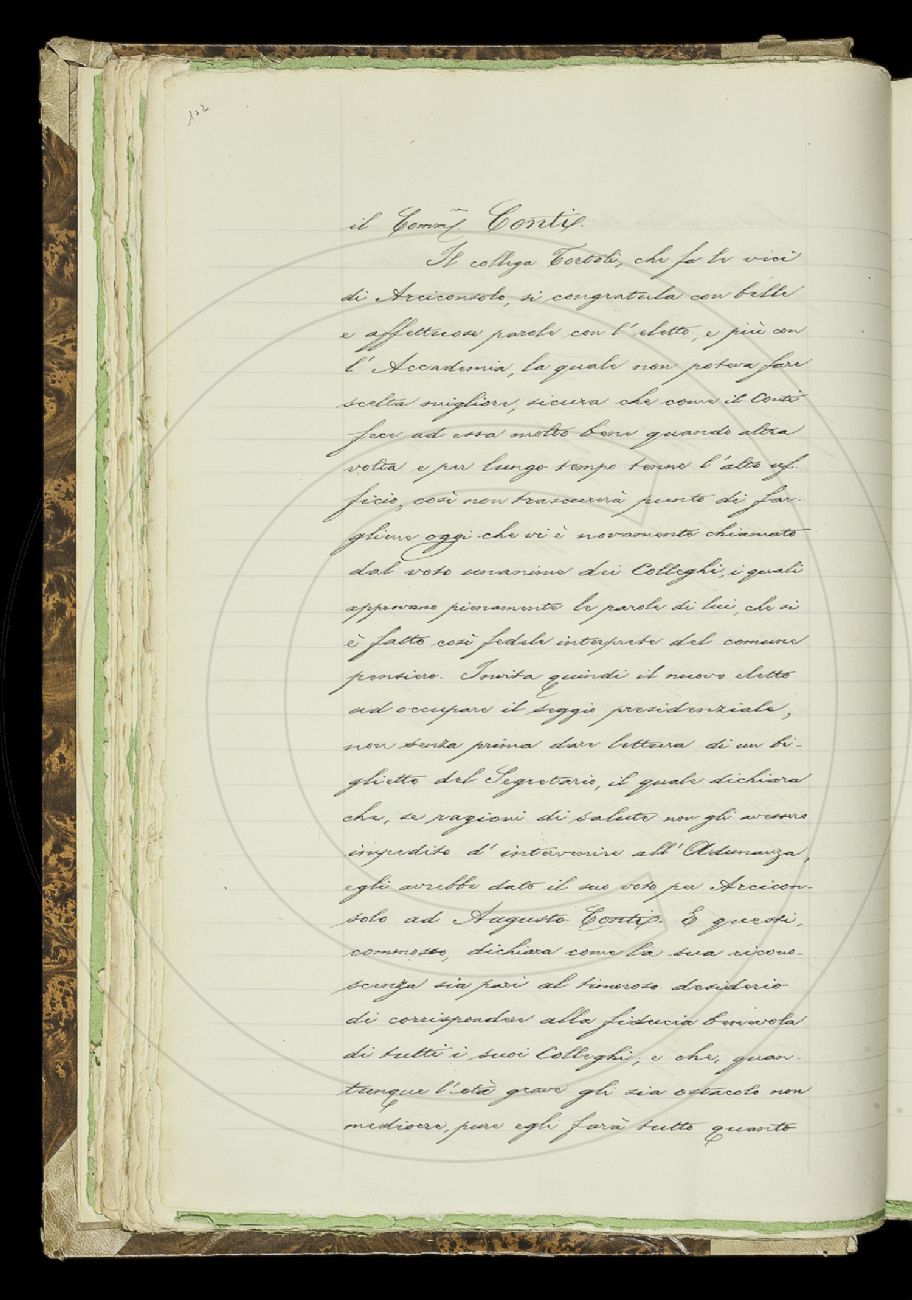 102
il Comm. Conti.
Il collega Tortoli, che fa le veci
di Arciconsolo, si congratula con belle
e affettuose parole con l'eletto, e più con
l'Accademia, la quale non poteva fare
scelta migliore, sicura che come il Conti
fece ad essa molto bene quando altra
volta e per lungo tempo tenne l'alto uf-
ficio, così non trascurerà punto di far-
gliene oggi che vi è novamente chiamato
dal voto unanime dei Colleghi, i quali
approvano pienamente le parole di lui, che si
è fatto così fedele interprete del comune
pensiero. Invita quindi il nuovo eletto
ad occupare il seggio presidenziale,
non senza prima dare lettura di un bi-
glietto del Segretario, il quale dichiara
che, se ragioni di salute non gli avessero
impedito d'intervenire all'Adunanza,
egli avrebbe dato il suo voto per Arcicon-
solo ad Augusto Conti. E questi,
commosso, dichiara come la sua ricono-
scenza sia pari al timoroso desiderio
di corrispondere alla fiducia benevola
di tutti i suoi Colleghi; e che, quan-
tunque l'età grave gli sia ostacolo non
mediocre, pure egli farà tutto quanto